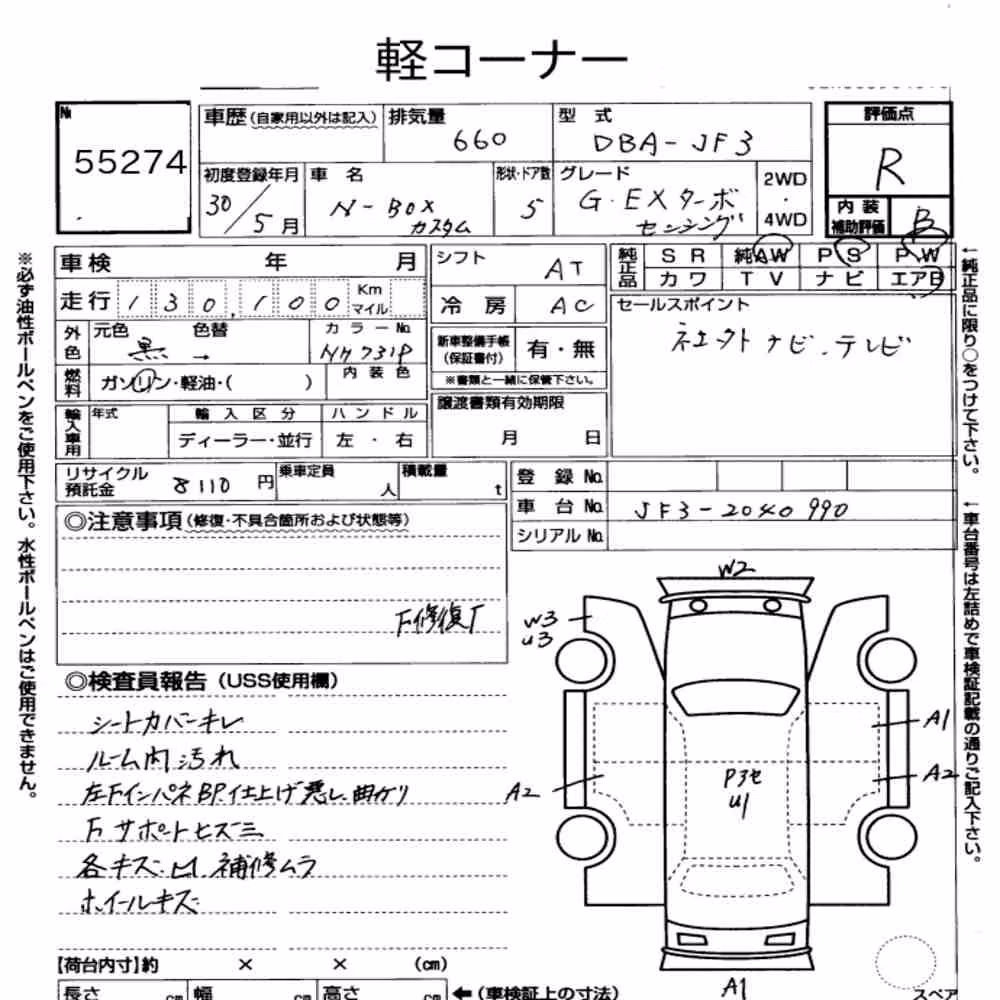 軽コーナー
№
55274
車歴 (自家用以外は記入)
排気量
660
型 式
DBA-JF3
評価点
R
初度登録年月
30/5月
車 名
N-BOX
カスタム
形状・ドア数
5
グレード
G・EXターボ
センシング
2WD
・
4WD
内 装
補助評価
B
車 検 年 月
走行 130,100 Km
マイル
シフト
AT
冷 房
AC
純正品
S R 純AW P S P W
カ ワ T V ナ ビ エアB
外色
元色 色替
黒 →
カラーNo.
NH731P
燃料
ガソリン・軽油・( )
内 装 色
新車整備手帳
(保証書付)
有・無
※書類と一緒に保管下さい。
セールスポイント
社外ナビ.テレビ
輸入車用
年式
輸 入 区 分
ディーラー・並行
ハ ン ド ル
左 ・ 右
譲渡書類有効期限
月 日
リサイクル
預託金
8110 円
乗車定員
人
積載量
t
登 録 No.
車 台 No. JF3-2040990
シリアル No.
◎注意事項 (修復・不具合箇所および状態等)
F修復F
◎検査員報告 (USS使用欄)
シートカバーキレ
ルーム内汚れ
左FインパネBP.仕上げ悪し.曲がり
Fサポートヒズミ
各キズ.凹.補修ムラ
ホイールキズ
W2
W3
U3
A1
A2
A2
U1
A1
スペア
【荷台内寸】約 × × (cm)
長さ cm 幅 cm 高さ cm ←(車検証上の寸法)
※必ず油性ボールペンをご使用下さい。水性ボールペンはご使用できません。
←純正品に限り○をつけて下さい。
←車台番号は左詰めで車検証記載の通りご記入下さい。